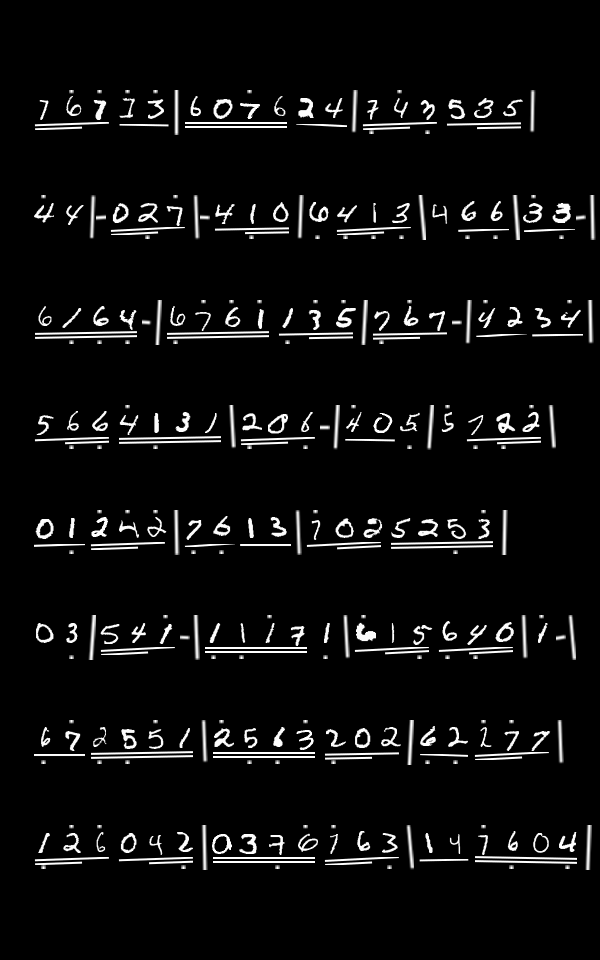 7 6 7 1 3 | 6 0 7 6 2 4 | 7 4 3 5 3 5 |
4 4 | - 0 2 7 | - 4 1 0 | 6 4 1 3 | 4 6 6 | 3 3 - |
6 1 6 4 - | 6 7 6 1 1 3 5 | 7 6 7 - | 4 2 3 4 |
5 6 6 4 1 3 1 | 2 0 6 - | 4 0 5 | 5 7 2 2 |
0 1 2 4 2 | 7 6 1 3 | 7 0 2 5 2 5 3 |
0 3 | 5 4 1 - | 1 1 1 7 1 | 6 1 5 6 4 0 | 1 - |
6 7 2 5 5 1 | 2 5 6 3 2 0 2 | 6 2 2 7 7 |
1 2 6 0 4 2 | 0 3 7 6 7 6 3 | 1 4 7 6 0 4 |